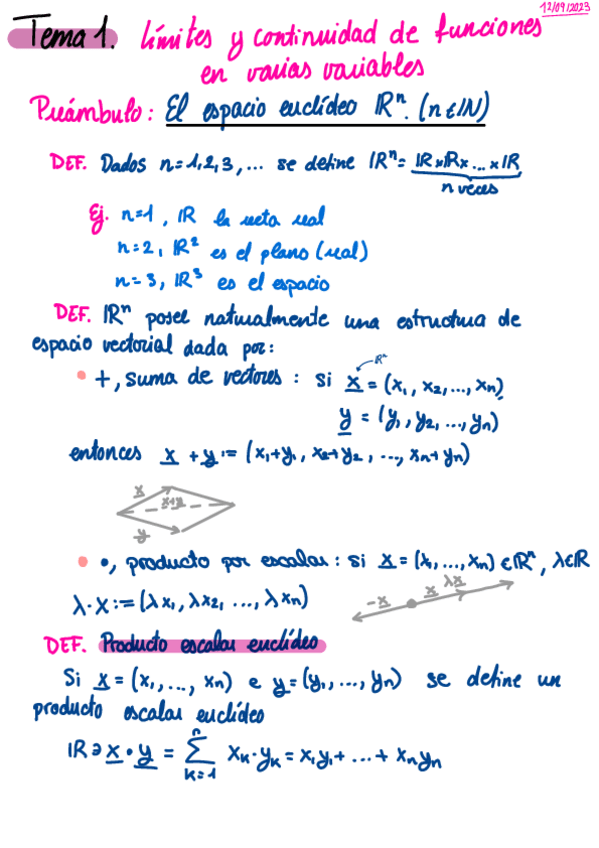 12/09/2023
Tema 1. límites y continuidad de funciones
en varias variables
Preámbulo: El espacio euclídeo ℝⁿ. (n∈ℕ)
DEF. Dados n=1,2,3,... se define ℝⁿ = ℝxℝx...xℝ
n veces
Ej. n=1, ℝ la recta real
n=2, ℝ² es el plano (real)
n=3, ℝ³ es el espacio
DEF. ℝⁿ posee naturalmente una estructura de
espacio vectorial dada por:
ℝⁿ
• +, suma de vectores: si x = (x₁, x₂, ..., xₙ)
y = (y₁, y₂, ..., yₙ)
entonces x + y := (x₁+y₁, x₂+y₂, ..., xₙ+yₙ)
x
x+y
y
• •, producto por escalar: si x = (x₁, ..., xₙ) ∈ ℝⁿ, λ∈ℝ
λ·x := (λx₁, λx₂, ..., λxₙ)
-x x λx
DEF. Producto escalar euclídeo
Si x = (x₁, ..., xₙ) e y = (y₁, ..., yₙ) se define un
producto escalar euclídeo
ℝ ∋ x • y = ∑ₖ₌₁ⁿ xₖ·yₖ = x₁y₁ + ... + xₙyₙ